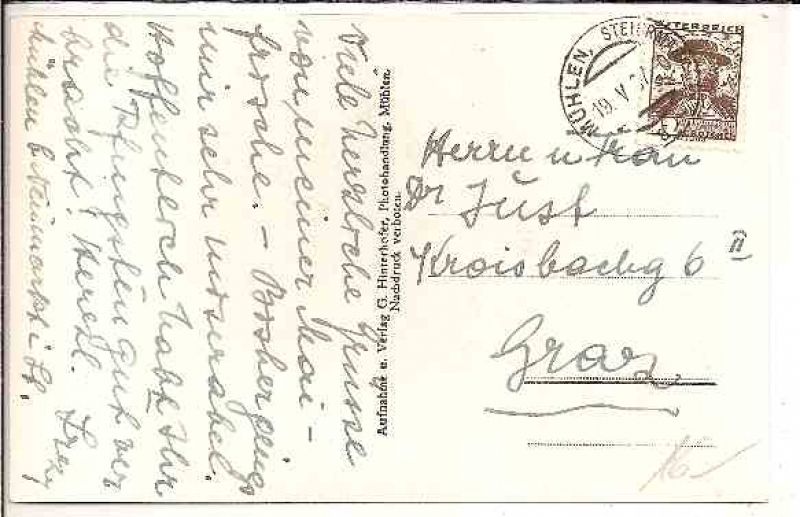 Viele herzliche Grüsse
von meiner Mai-
frische. - Bisher gings
mir sehr miserabel.
Hoffentlich habt Ihr
die Pfingsten gut ver
bracht! Herzl.
Mühlen b. Neumarkt i. St.
Aufnahme u. Verlag G. Hinterhofer, Photohandlung, Mühlen.
Nachdruck verboten.
MÜHLEN, STEIERM
19. V.
ÖSTERREICH
Herrn u Frau
Dr Just
Kroisbachg 6 II
Graz